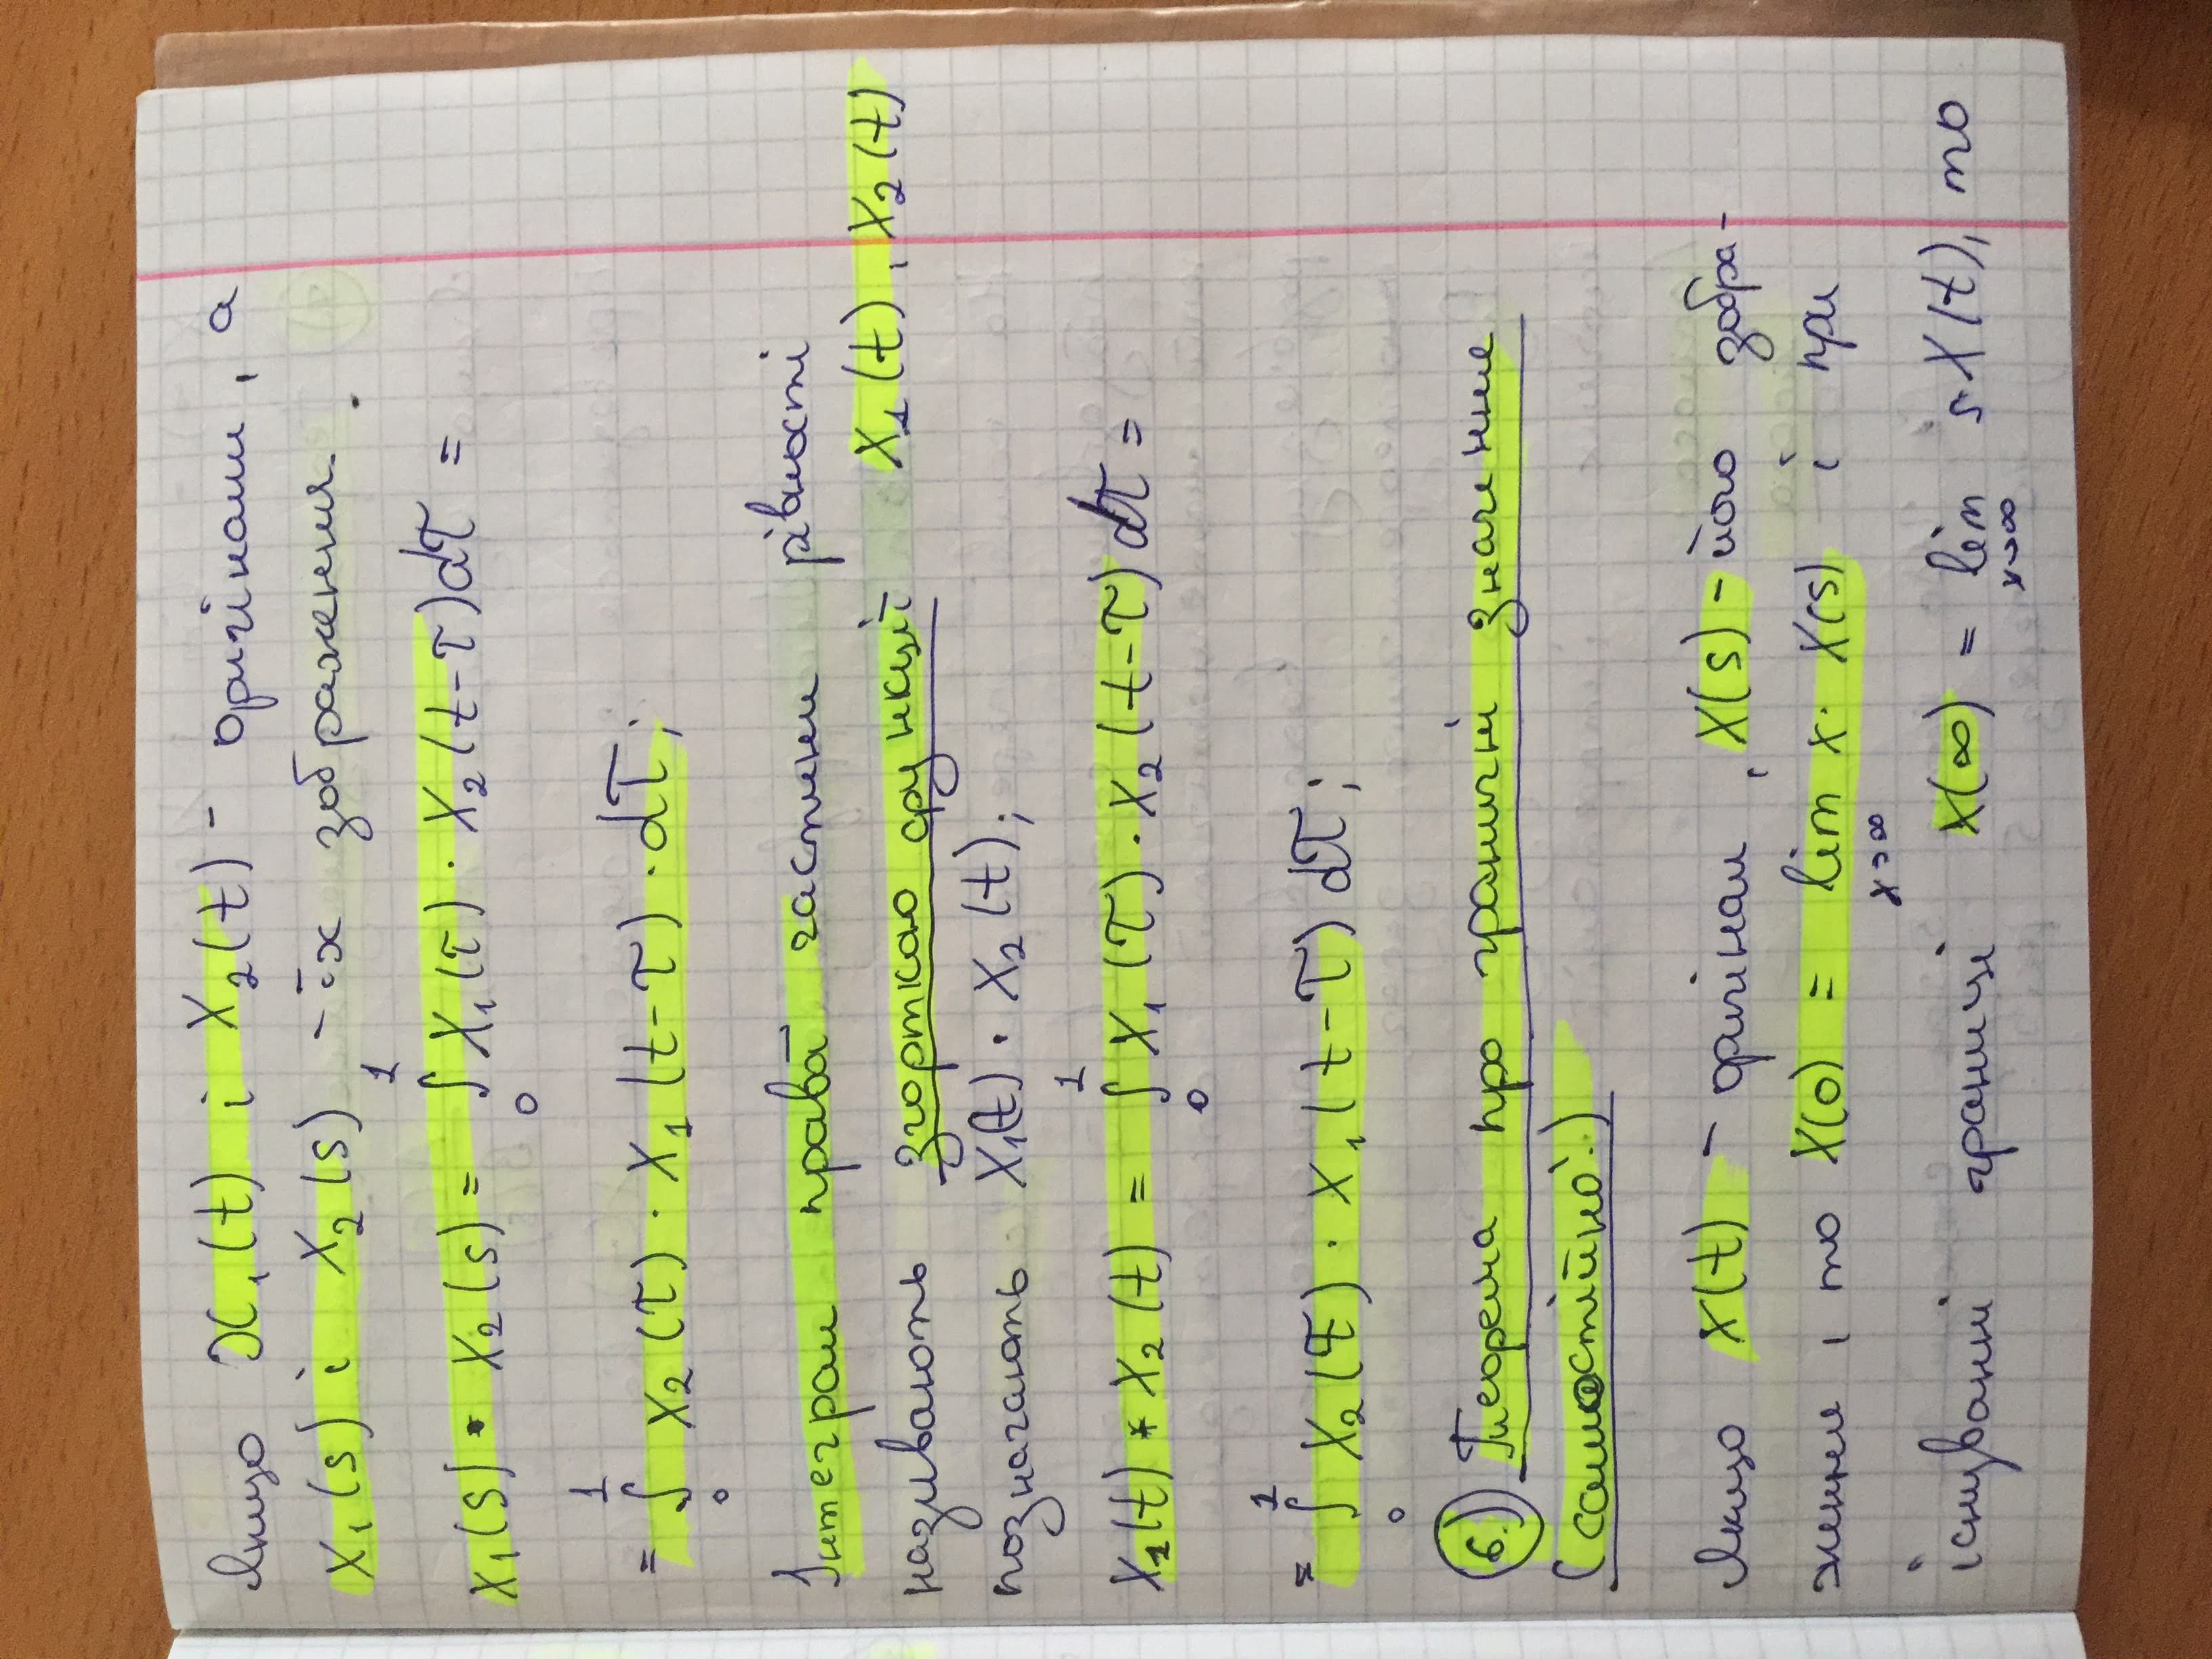 Якщо X₁(t) і X₂(t) – оригінали, а
X₁(s) і X₂(s) – їх зображення.
X₁(s) • X₂(s) = ∫₀¹ X₁(τ) · X₂(t-τ)dτ =
= ∫₀¹ X₂(τ) · X₁(t-τ) · dτ;
Інтеграл правої частини рівності
називають згорткою функцій X₁(t), X₂(t)
позначають X₁(t) · X₂(t);
X₁(t) * X₂(t) = ∫₀¹ X₁(τ) · X₂(t-τ)dτ =
= ∫₀¹ X₂(τ) · X₁(t-τ)dτ;
6.) Теорема про граничні значення
(самостійно!)
Якщо X(t) – оригінал, X(s) – його зобра-
ження, то X(0) = lim x · X(s) і при
x→∞
існуванні границі X(∞) = lim s X(t), то
x→∞